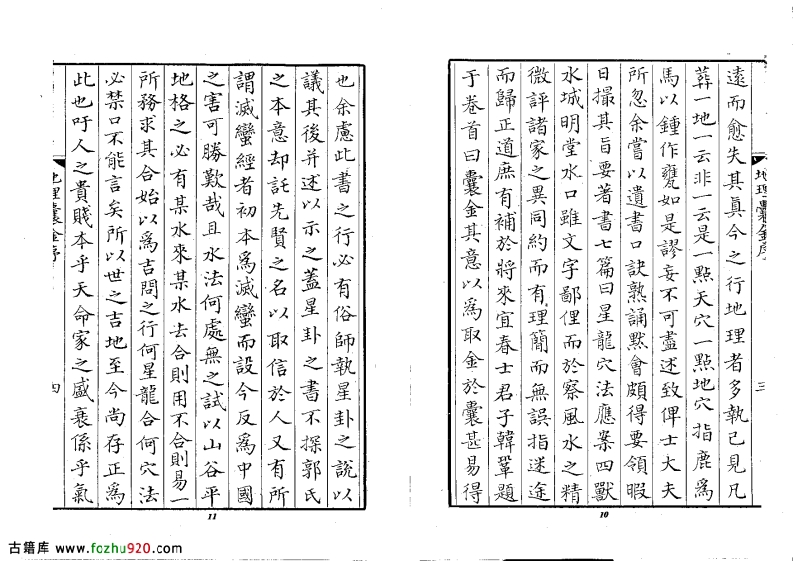 地理囊金序
三
遠而愈失其真今之行地理者多執己見凡
葬一地一云非一云是一點天穴一點地穴指鹿為
馬以鍾作甕如是謬妄不可盡述致俾士大夫
所忽余嘗以遺書口訣熟誦默會頗得要領暇
日撮其旨要著書七篇曰星龍穴法應案四獸
水城明堂水口雖文字鄙俚而於察風水之精
微評諸家之異同約而有理簡而無誤指迷途
而歸正道庶有補於將來宜春士君子韓鞏題
于卷首曰囊金其意以為取金於囊甚易得
10
也余慮此書之行必有俗師執星卦之說以
議其後并述以示之蓋星卦之書不探郭氏
之本意却託先賢之名以取信於人又有所
謂滅蠻經者初本為滅蠻而設今反為中國
之害可勝歎哉且水法何處無之試以山谷平
地格之必有某水來某水去合則用不合則易一
所務求其合始以為吉問之行何星龍合何穴法
必禁口不能言矣所以世之吉地至今尚存正為
此也吁人之貴賤本乎天命家之盛衰係乎氣
地理囊金序
四
11
古籍库 www.fozhu920.com